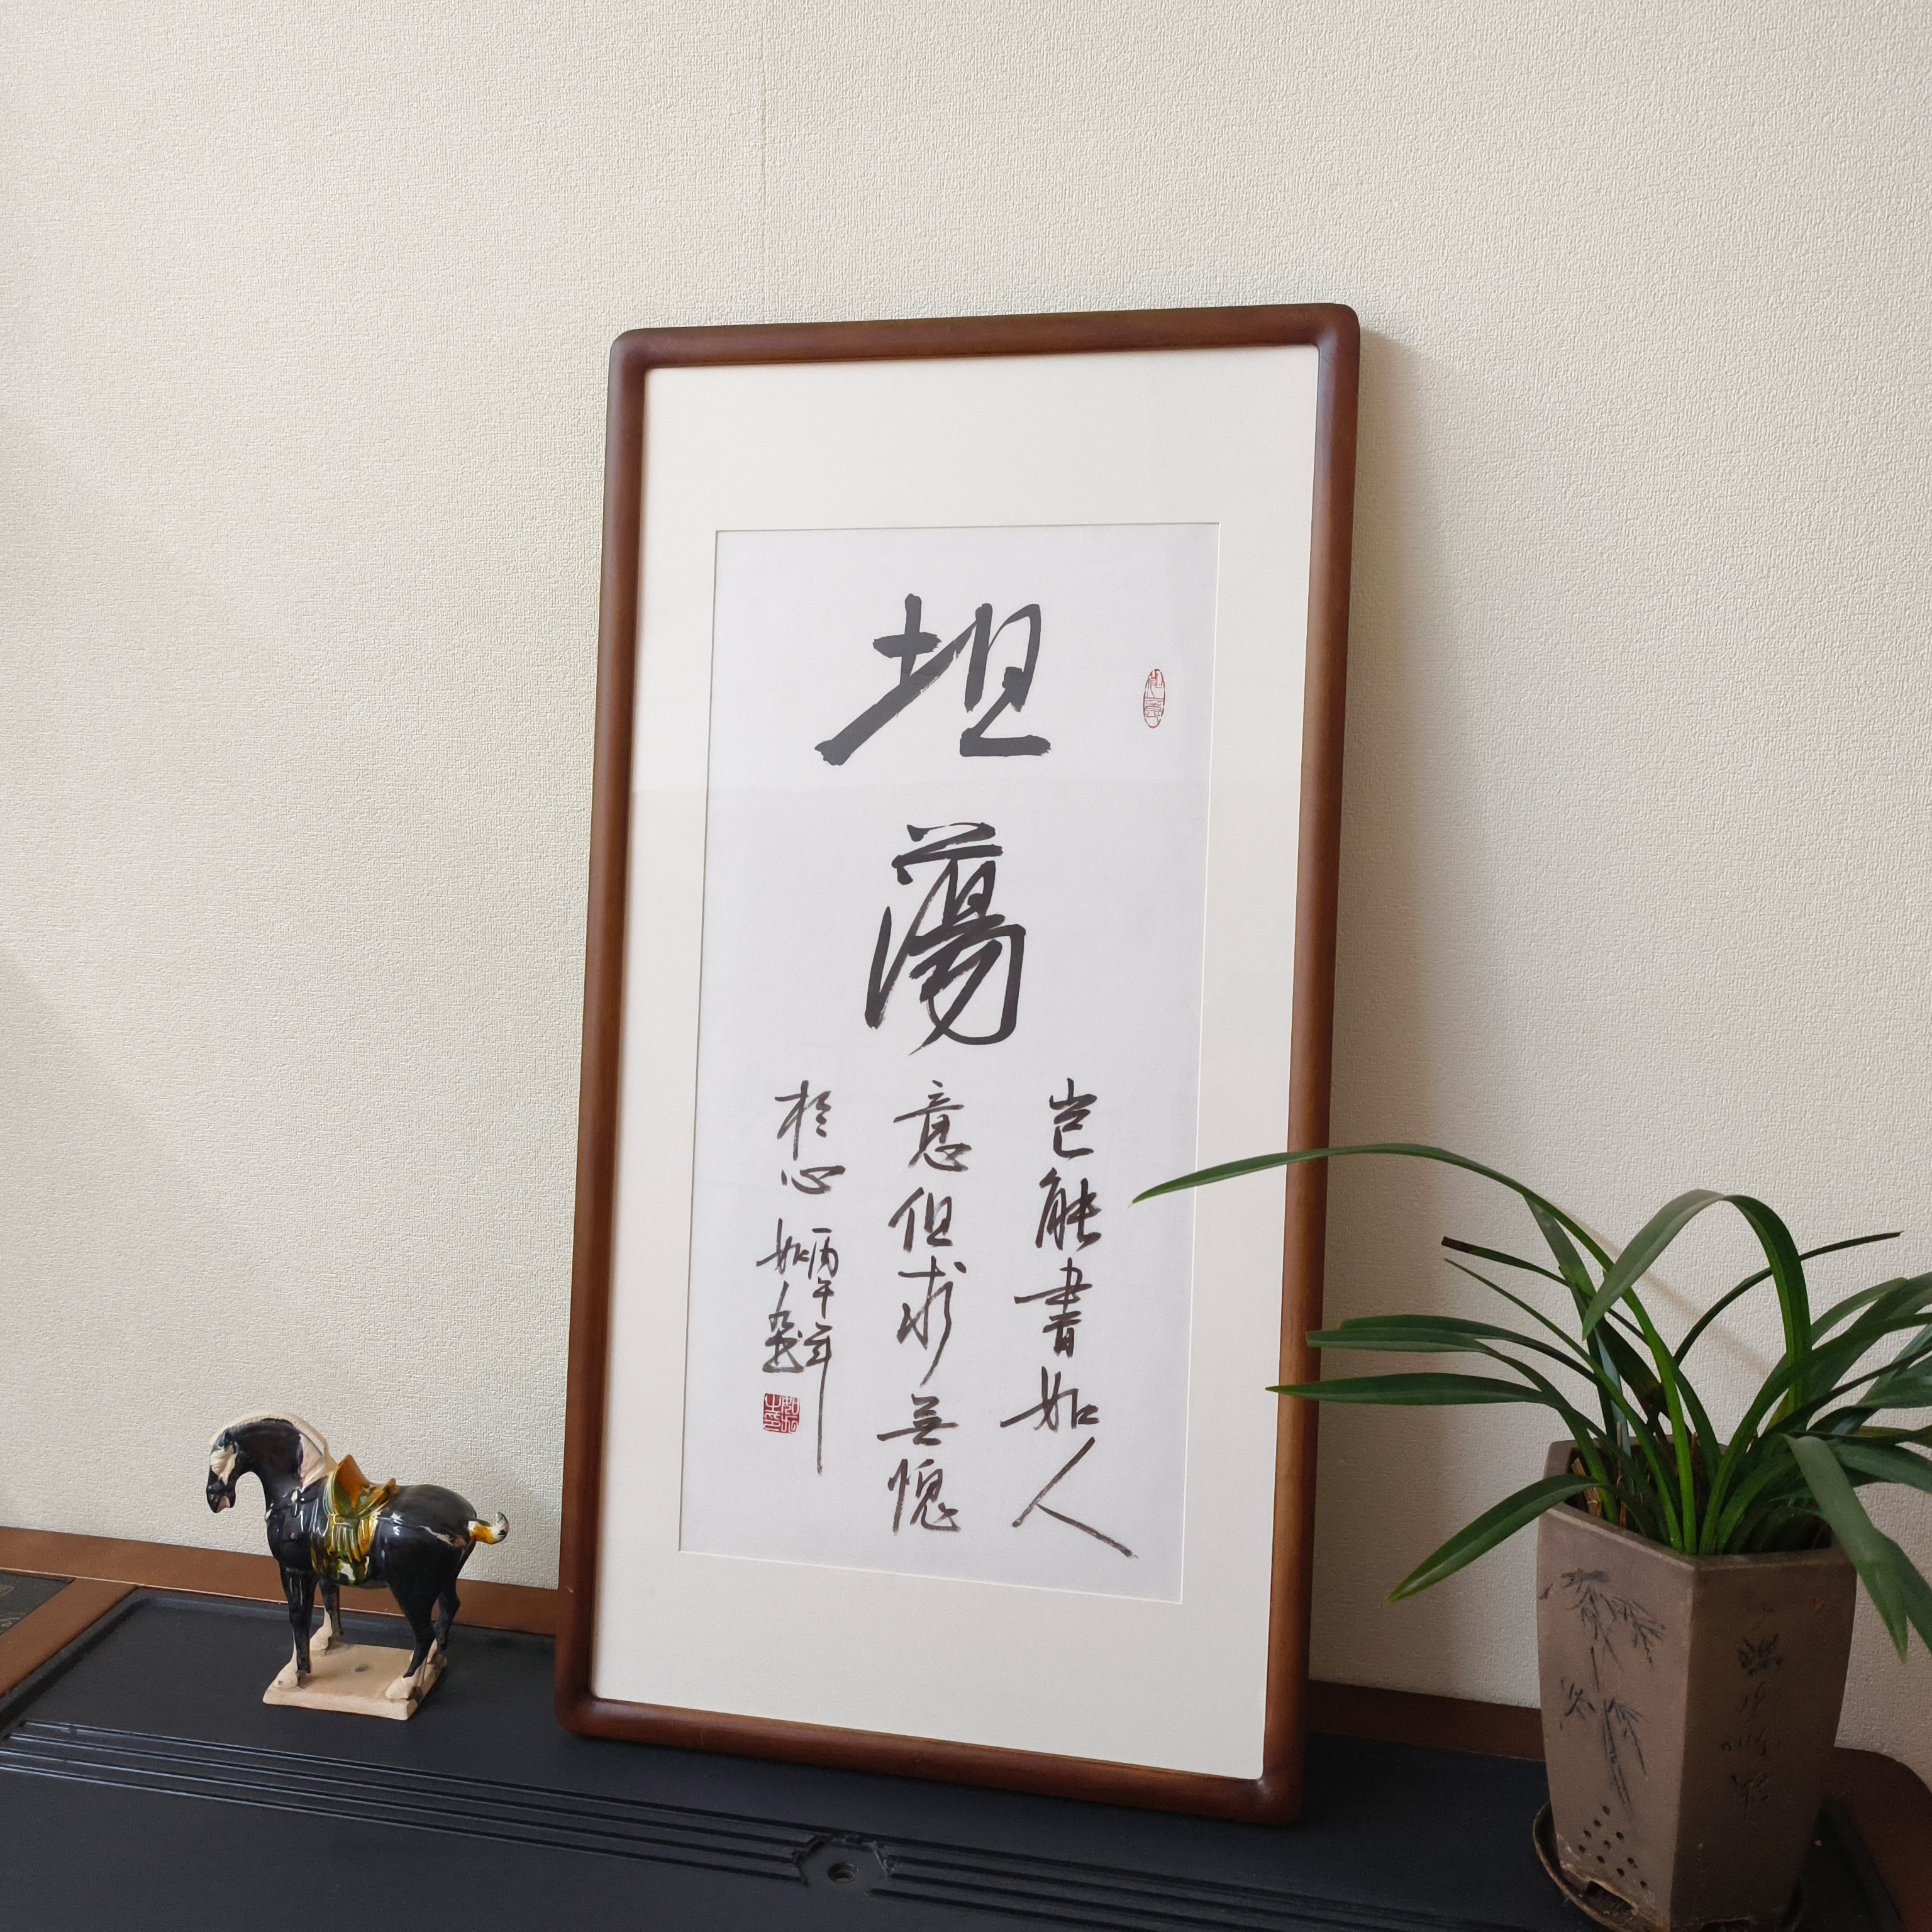 坦蕩
豈能書如人
意但求無愧
於心
丙午年